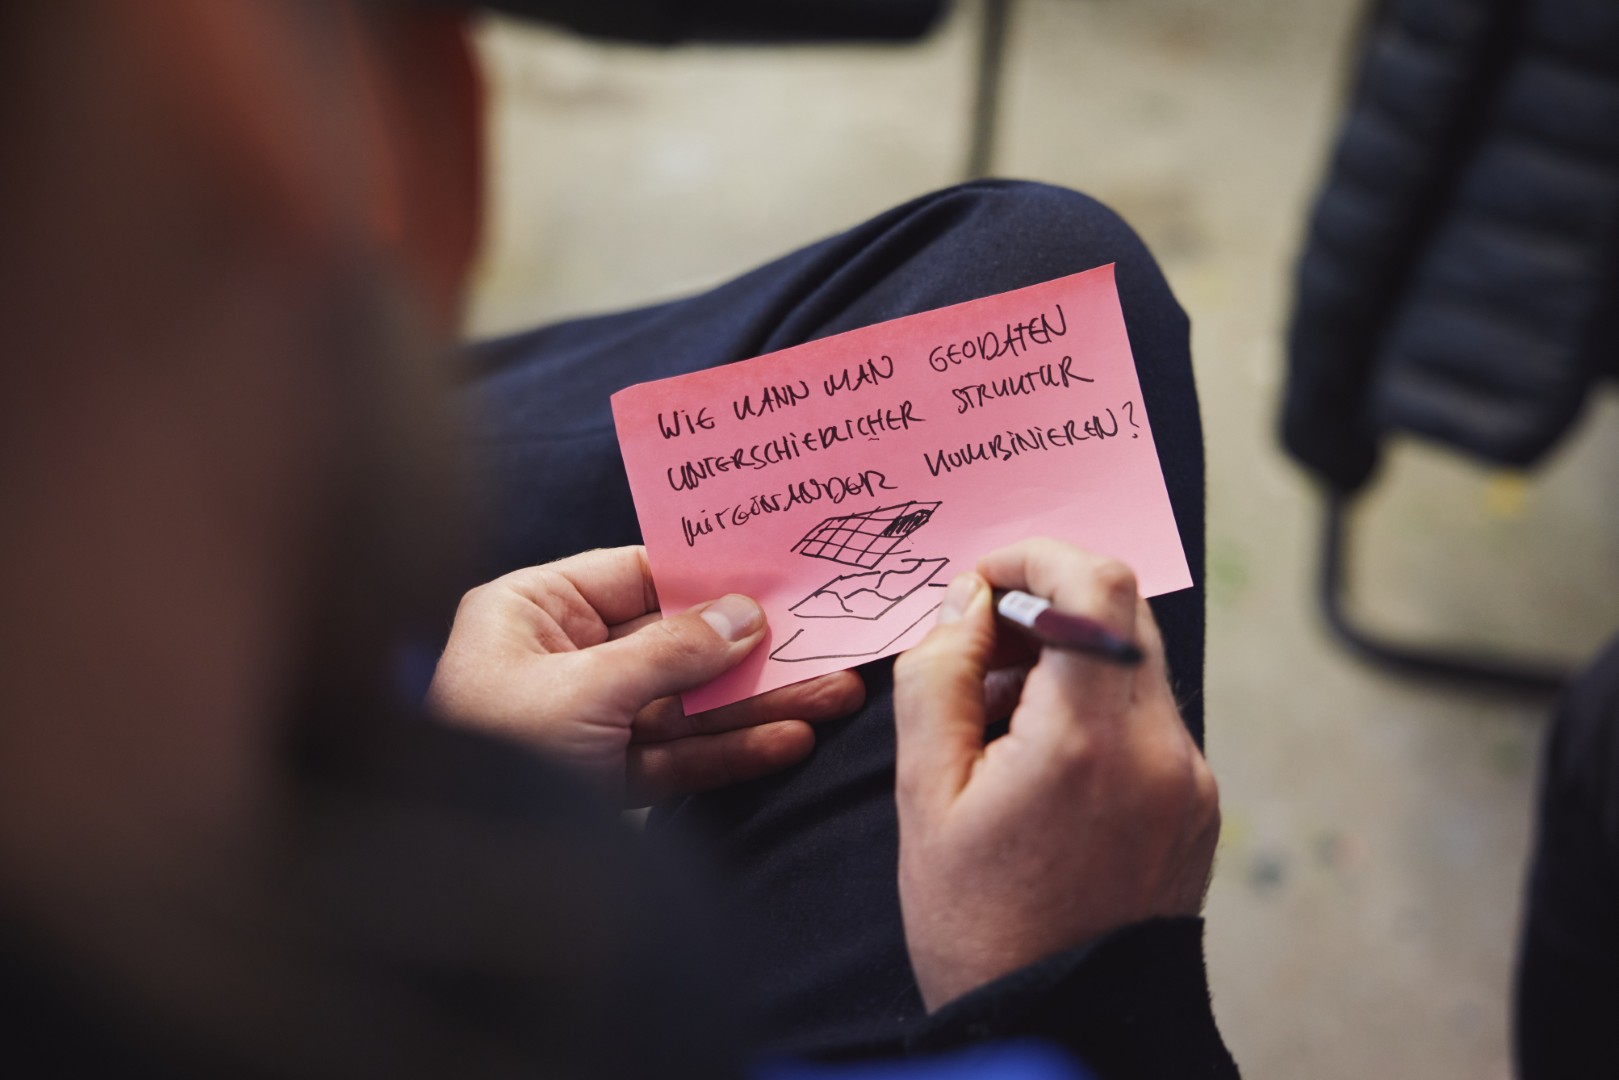 WIE KANN MAN GEODATEN
UNTERSCHIEDLICHER STRUKTUR
MITEINANDER KOMBINIEREN?